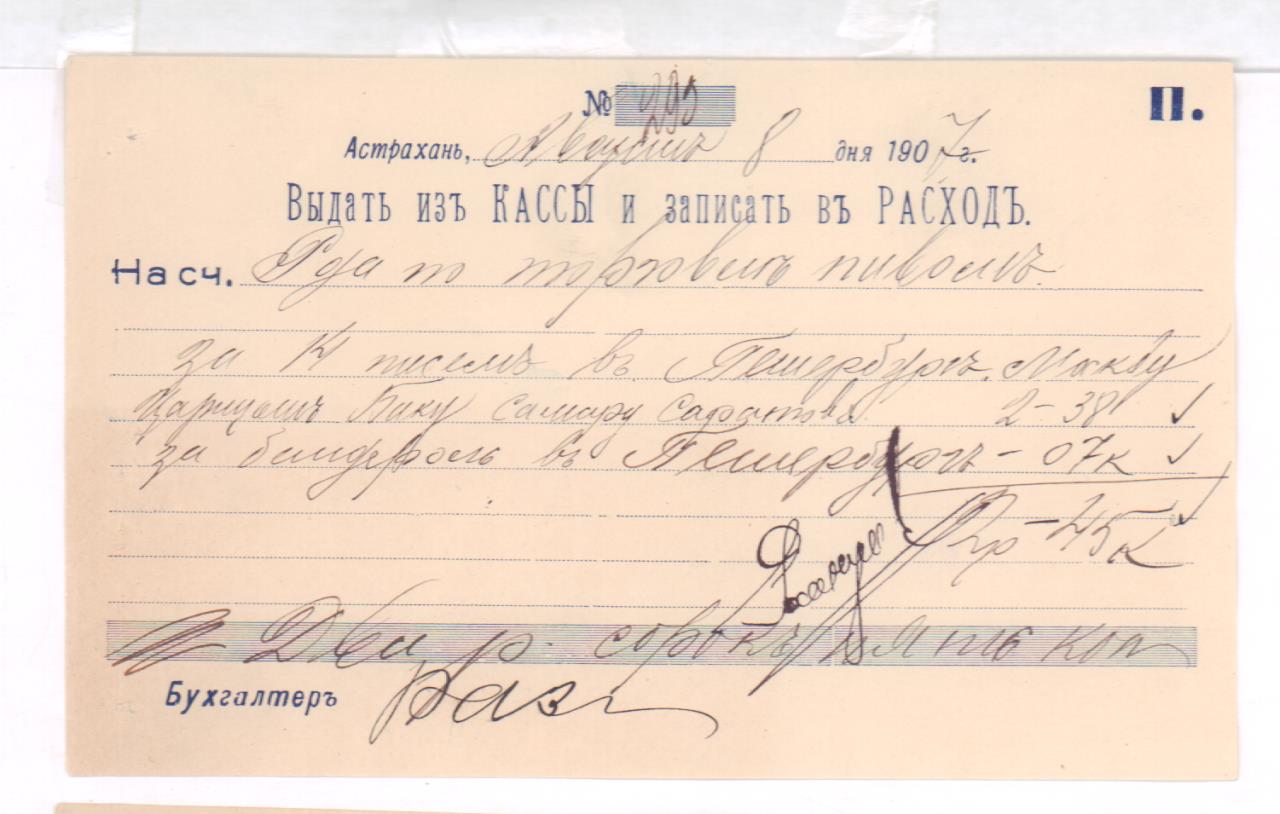 № 295 П.
Астрахань, Августъ 8 дня 1907 г.
Выдать изъ КАССЫ и записать въ РАСХОДЪ.
На сч. Р-да по торговлѣ пивомъ.
за 14 писемъ въ Петербургъ, Москву
Царицынъ Баку Самару Саратовъ 2-38
за бандероль въ Петербургъ - 07к
2р-45к
Два р. сорокъ пять коп
Бухгалтеръ